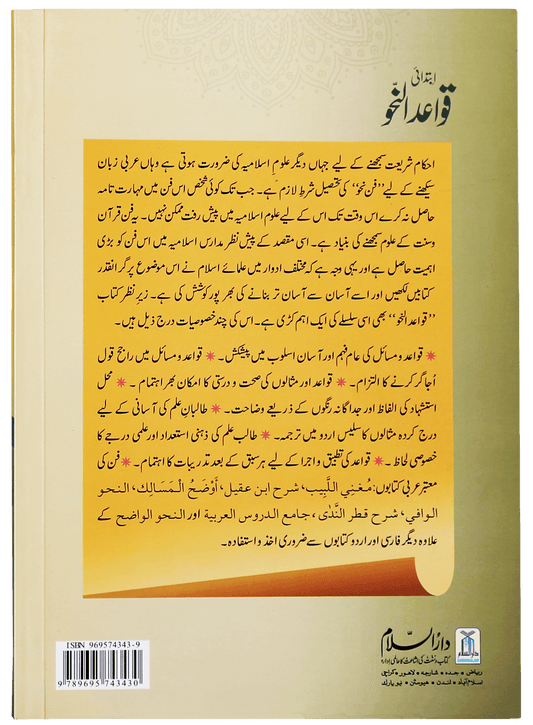 ابتدائی
قواعد النحو
احکام شریعت سمجھنے کے لیے جہاں دیگر علومِ اسلامیہ کی ضرورت ہوتی ہے وہاں عربی زبان
سیکھنے کے لیے ”فن نحو“ کی تحصیل شرطِ لازم ہے۔ جب تک کوئی شخص اس فن میں مہارت تامہ
حاصل نہ کرے اس وقت تک اس کے لیے علوم اسلامیہ میں پیش رفت ممکن نہیں۔ یہ فن قرآن
وسنت کے علوم سمجھنے کی بنیاد ہے۔ اسی مقصد کے پیش نظر مدارس اسلامیہ میں اس فن کو بڑی
اہمیت حاصل ہے اور یہی وجہ ہے کہ مختلف ادوار میں علمائے اسلام نے اس موضوع پر گرانقدر
کتابیں لکھیں اور اسے آسان سے آسان تر بنانے کی بھر پور کوشش کی ہے۔ زیرِ نظر کتاب
”قواعد النحو“ بھی اسی سلسلے کی ایک اہم کڑی ہے۔ اس کی چند خصوصیات درج ذیل ہیں۔
✷ قواعد و مسائل کی عام فہم اور آسان اسلوب میں پیشکش۔ ✷ قواعد و مسائل میں راجح قول
اُجاگر کرنے کا التزام۔ ✷ قواعد اور مثالوں کی صحت و درستی کا امکان بھر اہتمام ۔ ✷ محل
استشہاد کی الفاظ اور جداگانہ رنگوں کے ذریعے وضاحت۔ ✷ طالبانِ علم کی آسانی کے لیے
درج کردہ مثالوں کا سلیس اردو میں ترجمہ۔ ✷ طالب علم کی ذہنی استعداد اور علمی درجے کا
خصوصی لحاظ ۔ ✷ قواعد کی تطبیق و اجرا کے لیے ہر سبق کے بعد تدریبات کا اہتمام۔ ✷ فن کی
معتبر عربی کتابوں: مُغْنِي اللَّبِيب، شرح ابن عقيل، أَوْضَحُ الْمَسَالِك، النحو
الوافي، شرح قطر النَّدَى، جامع الدروس العربية اور النحو الواضح کے
علاوہ دیگر فارسی اور اردو کتابوں سے ضروری اخذ و استفادہ۔
ISBN 969574343-9
9 789695 743430
دارُ السلام
کتاب و سنت کی اشاعت کا عالمی ادارہ
ریاض • جدہ • شارجہ • لاہور • کراچی
اسلام آباد • لندن • ہیوسٹن • نیو یارک